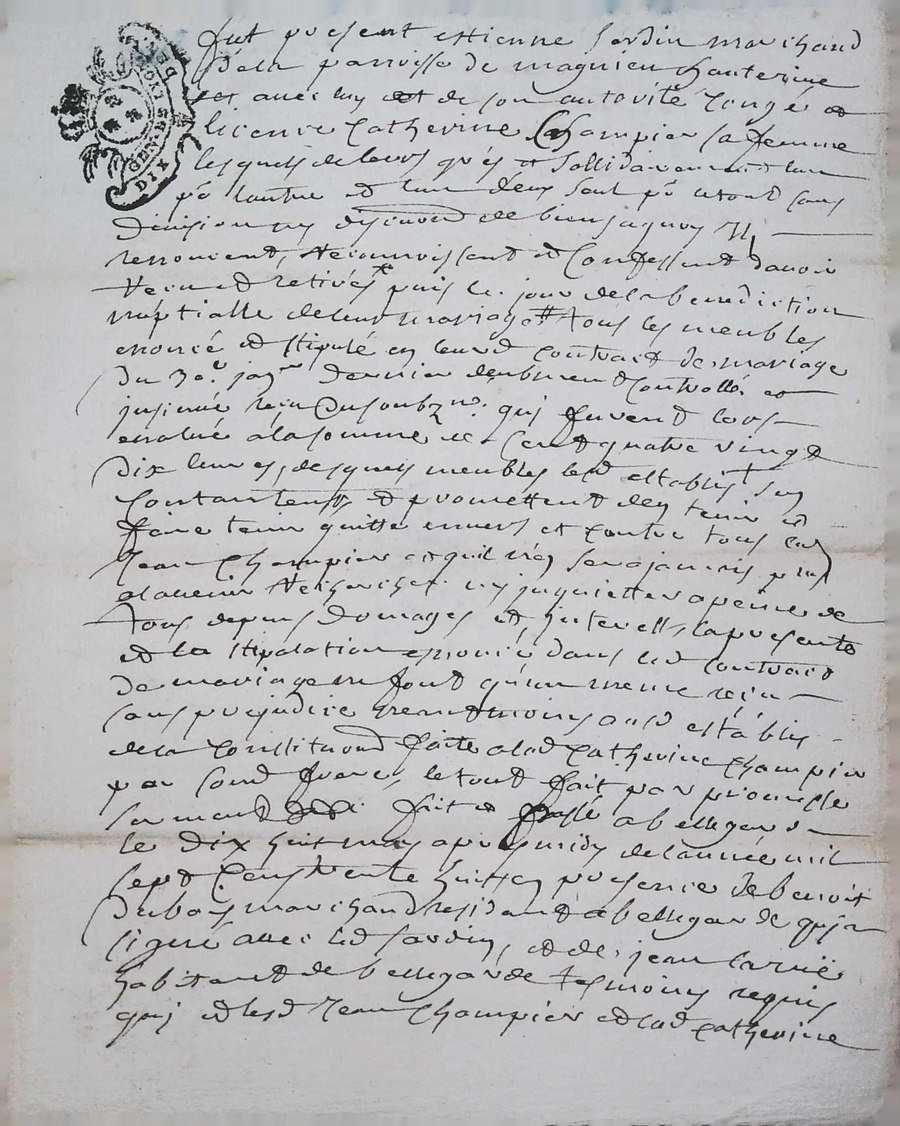 DE LYON
GEN
DIX
fut present estienne Jardin marchand
de la parroisse de magnieu hauterive
et avec luy et de son autorité congé et
licence Catherine Champier sa femme
lesquels de leurs grés et sollidairement lun
po lautre et lun deux seul po le tout sans
division ny discution de biens a quoy Ils
renoncent, Reconnoissent et Confessent davoir
Receu et retirés puis le jour de la benediction
nuptialle de leur mariage # tous les meubles
enoncé et stipulé en leurd contract de mariage
du 30e janer dernier deubment Controllé et
insinué receu du soubzne. qui furent lors
evalué a la somme de Cent quatre vingt
dix livres, desquels meubles lesd establis sen
contantent et promettent den tenir et
faire tenir quitte envers et contre tous led
Jean Champier et quil n'en sera jamais plus
a ladvenir Recherché ny inquietter a peine de
tous depens domages et interest, la presente
et la stipulation enoncée dans led contract
de mariage ne font qu'un meme receu
sans prejudice neantmoins ausd establis
de la Constituon faite a lad Catherine Champier
par sond frere, le tout fait par promesse
serment fait et passé a bellegarde
le dix huit may apres midy de lannée mil
sept Cens trente huit en presence de benoit
dubois marchand residant a bellegarde qui a
signé avec led Jardin, et de jean
habitant de bellegarde tesmoins requis
qui et lesd Jean Champier et lad Catherine